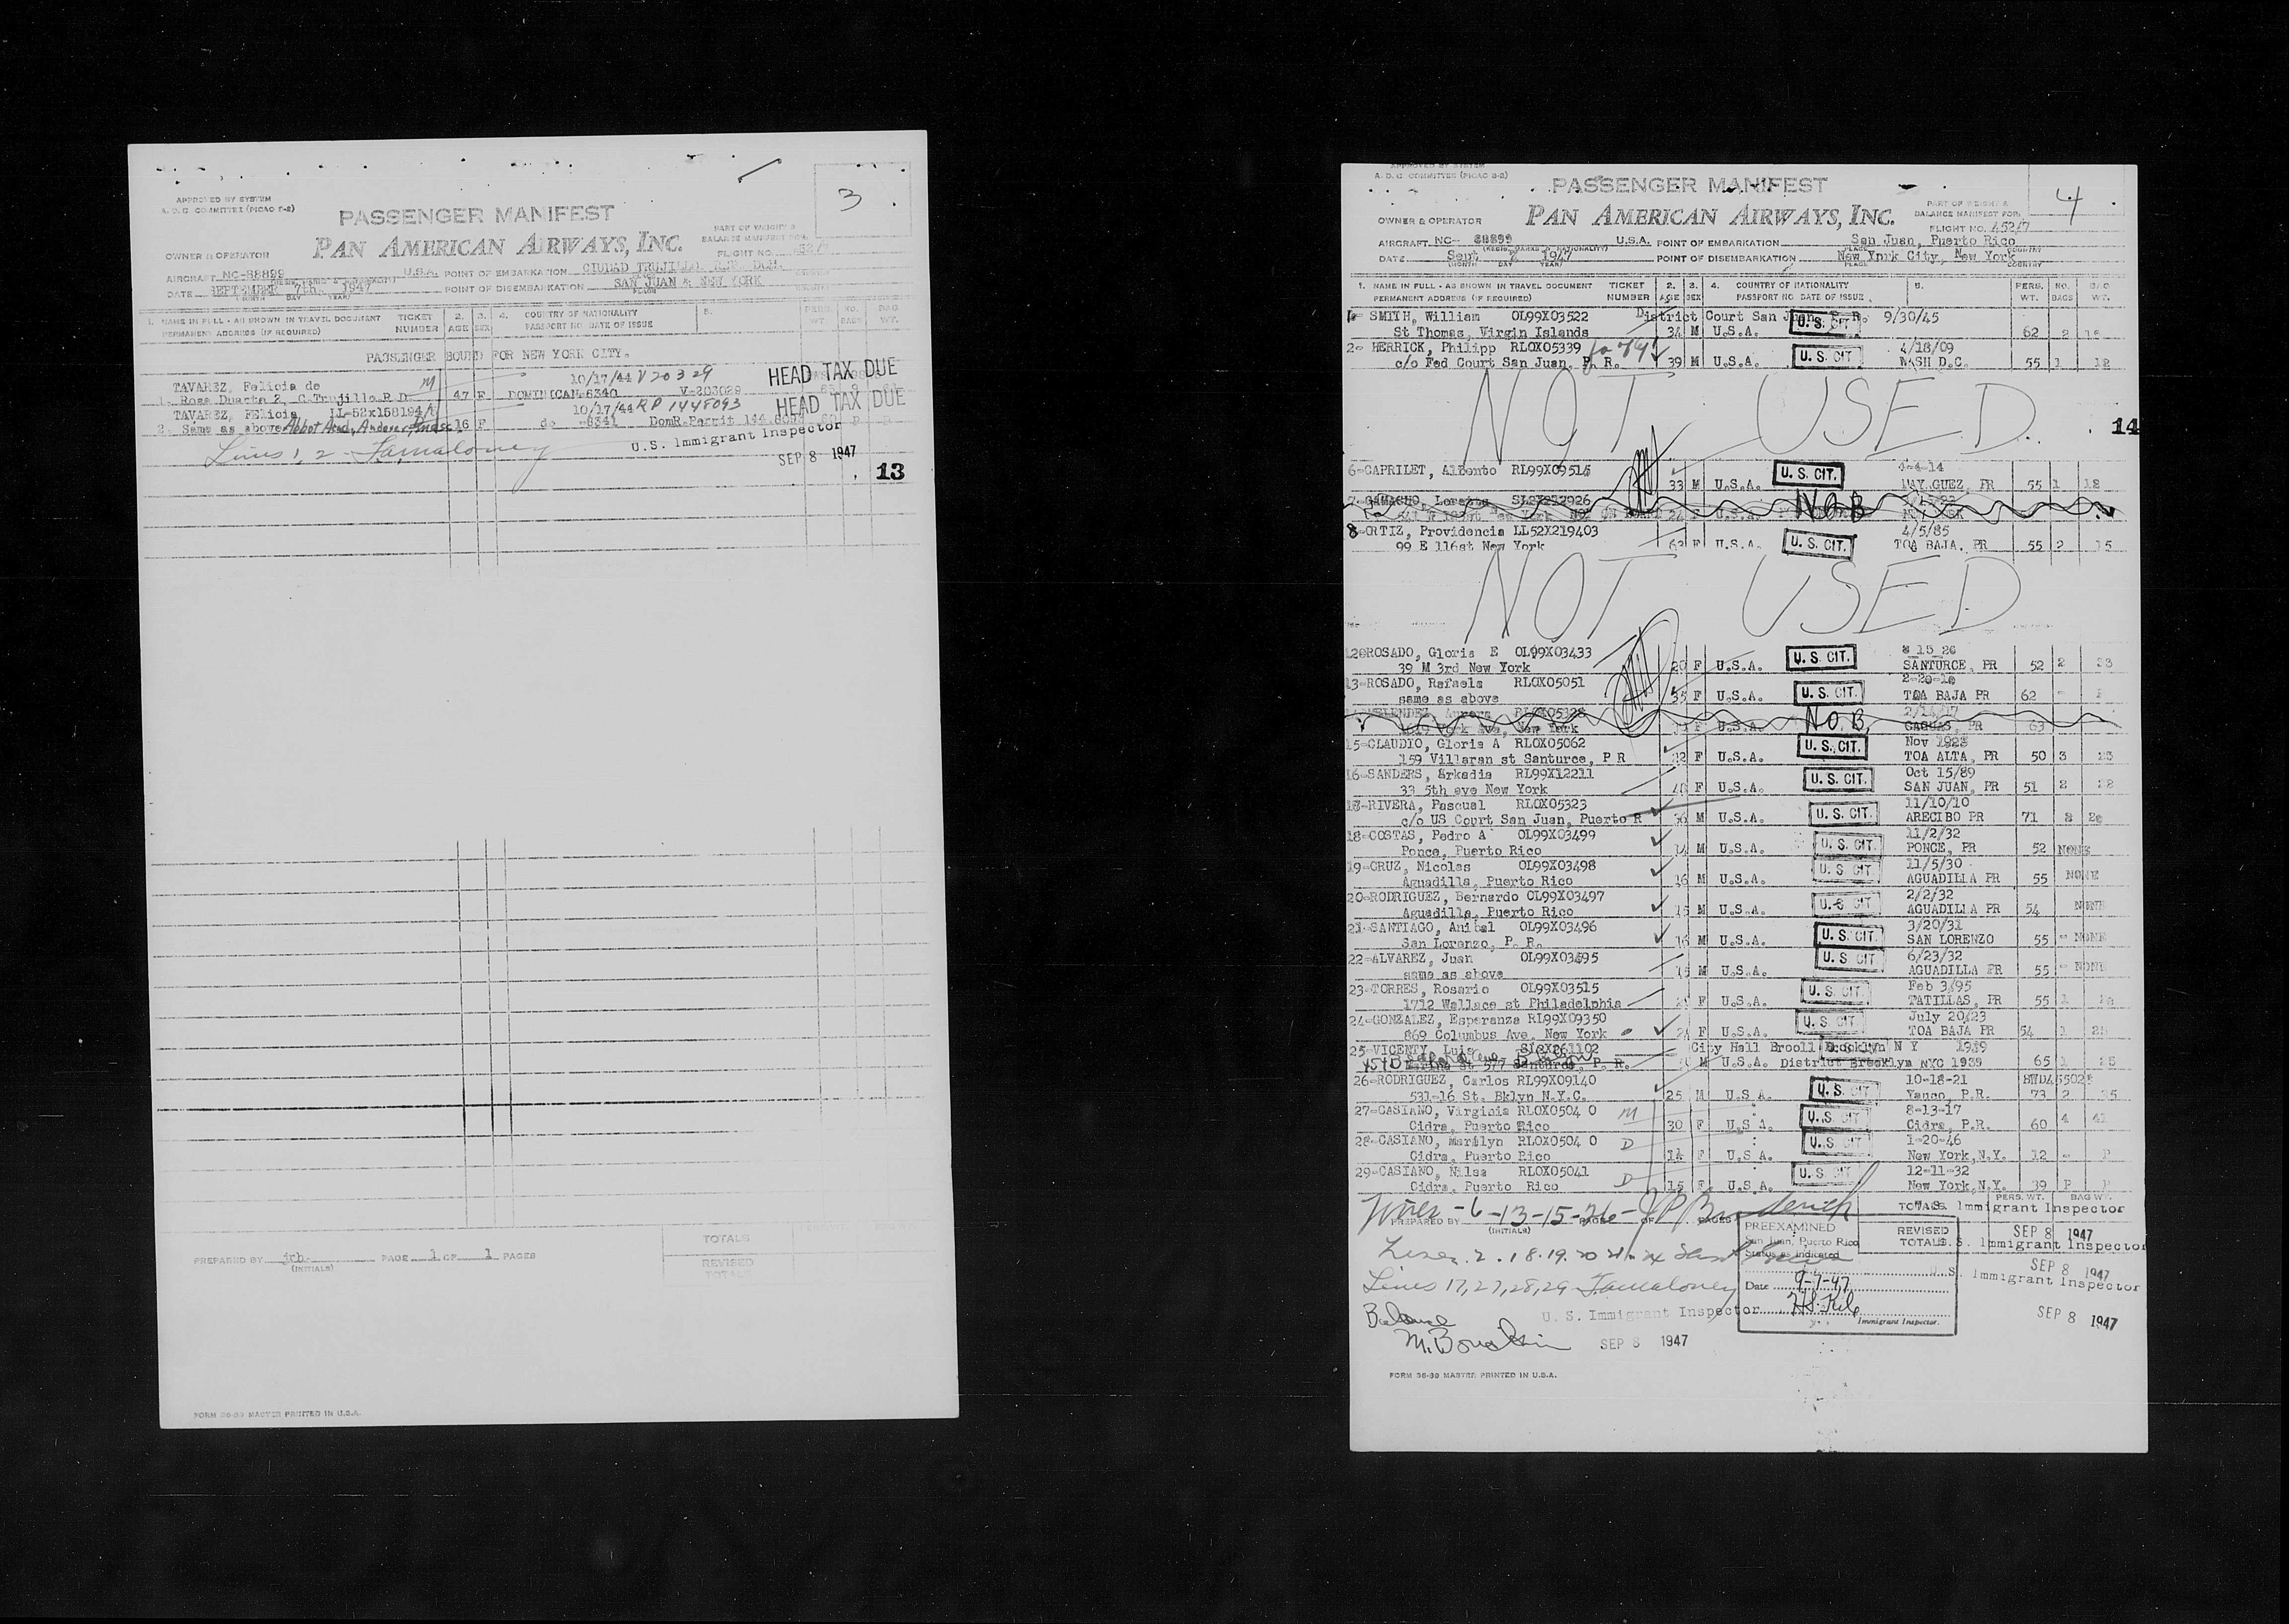 3
APPROVED BY SYSTEM
A. D. C. COMMITTEE (PICAO 8-2)
PASSENGER MANIFEST
PAN AMERICAN AIRWAYS, INC.
PART OF WEIGHT &
BALANCE MANIFEST FOR:
OWNER & OPERATOR
FLIGHT NO. 452/7
AIRCRAFT NC-88899 U.S.A. POINT OF EMBARKATION CIUDAD TRUJILLO, REP. DOM.
DATE SEPTEMBER 7th. 1947 POINT OF DISEMBARKATION SAN JUAN & NEW YORK
(MONTH DAY YEAR) PLACE
1. NAME IN FULL - AS SHOWN IN TRAVEL DOCUMENT TICKET 2. 3. 4. COUNTRY OF NATIONALITY 5. PERS. NO. BAG
PERMANENT ADDRESS (IF REQUIRED) NUMBER AGE SEX PASSPORT NO DATE OF ISSUE WT. BAGS WT.
PASSENGER BOUND FOR NEW YORK CITY.
TAVAREZ, Felicia de M 10/17/44 V20329 HEAD TAX DUE
1. Rosa Duarte 2, C.Trujillo R D 47 F DOMINICAN 6340 V-203029
TAVAREZ, Felicia LL-52x158194 10/17/44 RP 1448093 HEAD TAX DUE
2. Same as above Abbot Acad, Andover, Mass. 16 F do -6341 DomR.Permit
Lines 1, 2 - Famaloney U.S. Immigrant Inspector
SEP 8 1947
13
PREPARED BY jrb- PAGE 1 OF 1 PAGES
(INITIALS)
TOTALS
REVISED
TOTALS
FORM 36-39 MASTER PRINTED IN U.S.A.
4
APPROVED BY SYSTEM
A. D. C. COMMITTEE (PICAO 8-2)
PASSENGER MANIFEST
PAN AMERICAN AIRWAYS, INC.
PART OF WEIGHT &
BALANCE MANIFEST FOR:
OWNER & OPERATOR
FLIGHT NO. 452/7
AIRCRAFT NC- 88899 U.S.A. POINT OF EMBARKATION San Juan, Puerto Rico
DATE Sept 7 1947 POINT OF DISEMBARKATION New York City, New York
(MONTH DAY YEAR) PLACE COUNTRY
1. NAME IN FULL - AS SHOWN IN TRAVEL DOCUMENT TICKET 2. 3. 4. COUNTRY OF NATIONALITY 5. PERS. NO. BAG
PERMANENT ADDRESS (IF REQUIRED) NUMBER AGE SEX PASSPORT NO DATE OF ISSUE WT. BAGS WT.
SMITH, William OL99X03522 District Court San Juan, P. R. 9/30/45
St Thomas, Virgin Islands 34 M U.S.A. U. S. CIT. 62 2 18
2-HERRICK, Philipp RLOX05339 4/18/09
c/o Fed Court San Juan, P. R. 39 M U.S.A. U. S. CIT. WASH D.C. 55 1 12
NOT USED
14
6-CAPRILET, Alberto RL99X09515 U. S. CIT. 4-4-14
33 M U.S.A. MAYAGUEZ, PR 55 1 18
7-CAMACHO, NOB
8-ORTIZ, Providencia LL52X219403 4/5/85
99 E 116st New York 62 F U.S.A. U. S. CIT. TOA BAJA, PR 55 2 15
NOT USED
12-ROSADO, Gloria E OL99X03433 8 15 26
39 M 3rd New York 20 F U.S.A. U. S. CIT. SANTURCE, PR 52 2 33
13-ROSADO, Rafaela RLOX05051 2-20-12
same as above 35 F U.S.A. U. S. CIT. TOA BAJA PR 62
MELENDEZ, Aurora RLOX05328 NOB 2/14/17
York Ave, New York F U.S.A. CAGUAS, PR 63
15-CLAUDIO, Gloria A RLOX05062 Nov 1925
159 Villaran st Santurce, P R 22 F U.S.A. U. S. CIT. TOA ALTA, PR 50 3 23
16-SANDERS, Arkadia RL99X12211 Oct 15/89
33 5th ave New York F U.S.A. U. S. CIT. SAN JUAN, PR 51 2 22
17-RIVERA, Pascual RLOX05323 11/10/10
c/o US Court San Juan, Puerto R 36 M U.S.A. U. S. CIT. ARECIBO PR 71
18-COSTAS, Pedro A OL99X03499 11/2/32
Ponce, Puerto Rico 14 M U.S.A. U. S. CIT. PONCE, PR 52 NONE
19-CRUZ, Nicolas OL99X03498 11/5/30
Aguadilla, Puerto Rico 16 M U.S.A. U. S. CIT. AGUADILLA PR 55 NONE
20-RODRIGUEZ, Bernardo OL99X03497 2/2/32
Aguadilla, Puerto Rico 15 M U.S.A. U. S. CIT. AGUADILLA PR 54 NONE
21-SANTIAGO, Anibal OL99X03496 3/20/31
San Lorenzo, P. R. 16 M U.S.A. U. S. CIT. SAN LORENZO 55 - NONE
22-ALVAREZ, Juan OL99X03495 6/23/32
same as above 15 M U.S.A. U. S. CIT. AGUADILLA PR 55 - NONE
23-TORRES, Rosario OL99X03515 Feb 3/95
1712 Wallace st Philadelphia F U.S.A. U. S. CIT. PATILLAS, PR 55 1
24-GONZALEZ, Esperanza RL99X09350 July 20/23
869 Columbus Ave. New York 24 F U.S.A. U. S. CIT. TOA BAJA PR 54 1 25
25-VICENTY, Luis SL2X261102 City Hall Brooklyn N Y 1939
Marina St 577 Santurce, P. R. M U.S.A. District Brooklyn NYC 1939 65 1 25
26-RODRIGUEZ, Carlos RL99X09140 10-18-21
531-16 St. Bklyn N.Y.C. 25 M U.S.A. U. S. CIT. Yauco, P.R. 73 2 35
27-CASIANO, Virginia RLOX0504 0 M 8-13-17
Cidra, Puerto Rico 30 F U.S.A. U. S. CIT. Cidra, P.R. 60 4 41
28-CASIANO, Marilyn RLOX0504 0 D 1-20-46
Cidra, Puerto Rico 14 F U.S.A. U. S. CIT. New York,N.Y. 12 -
29-CASIANO, Nilsa RLOX05041 D 12-11-32
Cidra, Puerto Rico 15 F U.S.A. U. S. CIT. New York,N.Y. 39 P P
PERS. WT. BAG WT.
-6-13-15-26-
PREPARED BY PAGE OF PAGES
(INITIALS)
TOTALS U.S. Immigrant Inspector
REVISED
TOTALS
SEP 8 1947
U. S. Immigrant Inspector
SEP 8 1947
U. S. Immigrant Inspector
SEP 8 1947
PREEXAMINED
San Juan, Puerto Rico
Status as indicated
Date 9-7-47
Immigrant Inspector.
Lines 17, 27, 28, 29 Famaloney
U. S. Immigrant Inspector
SEP 8 1947
Balance
FORM 36-39 MASTER PRINTED IN U.S.A.